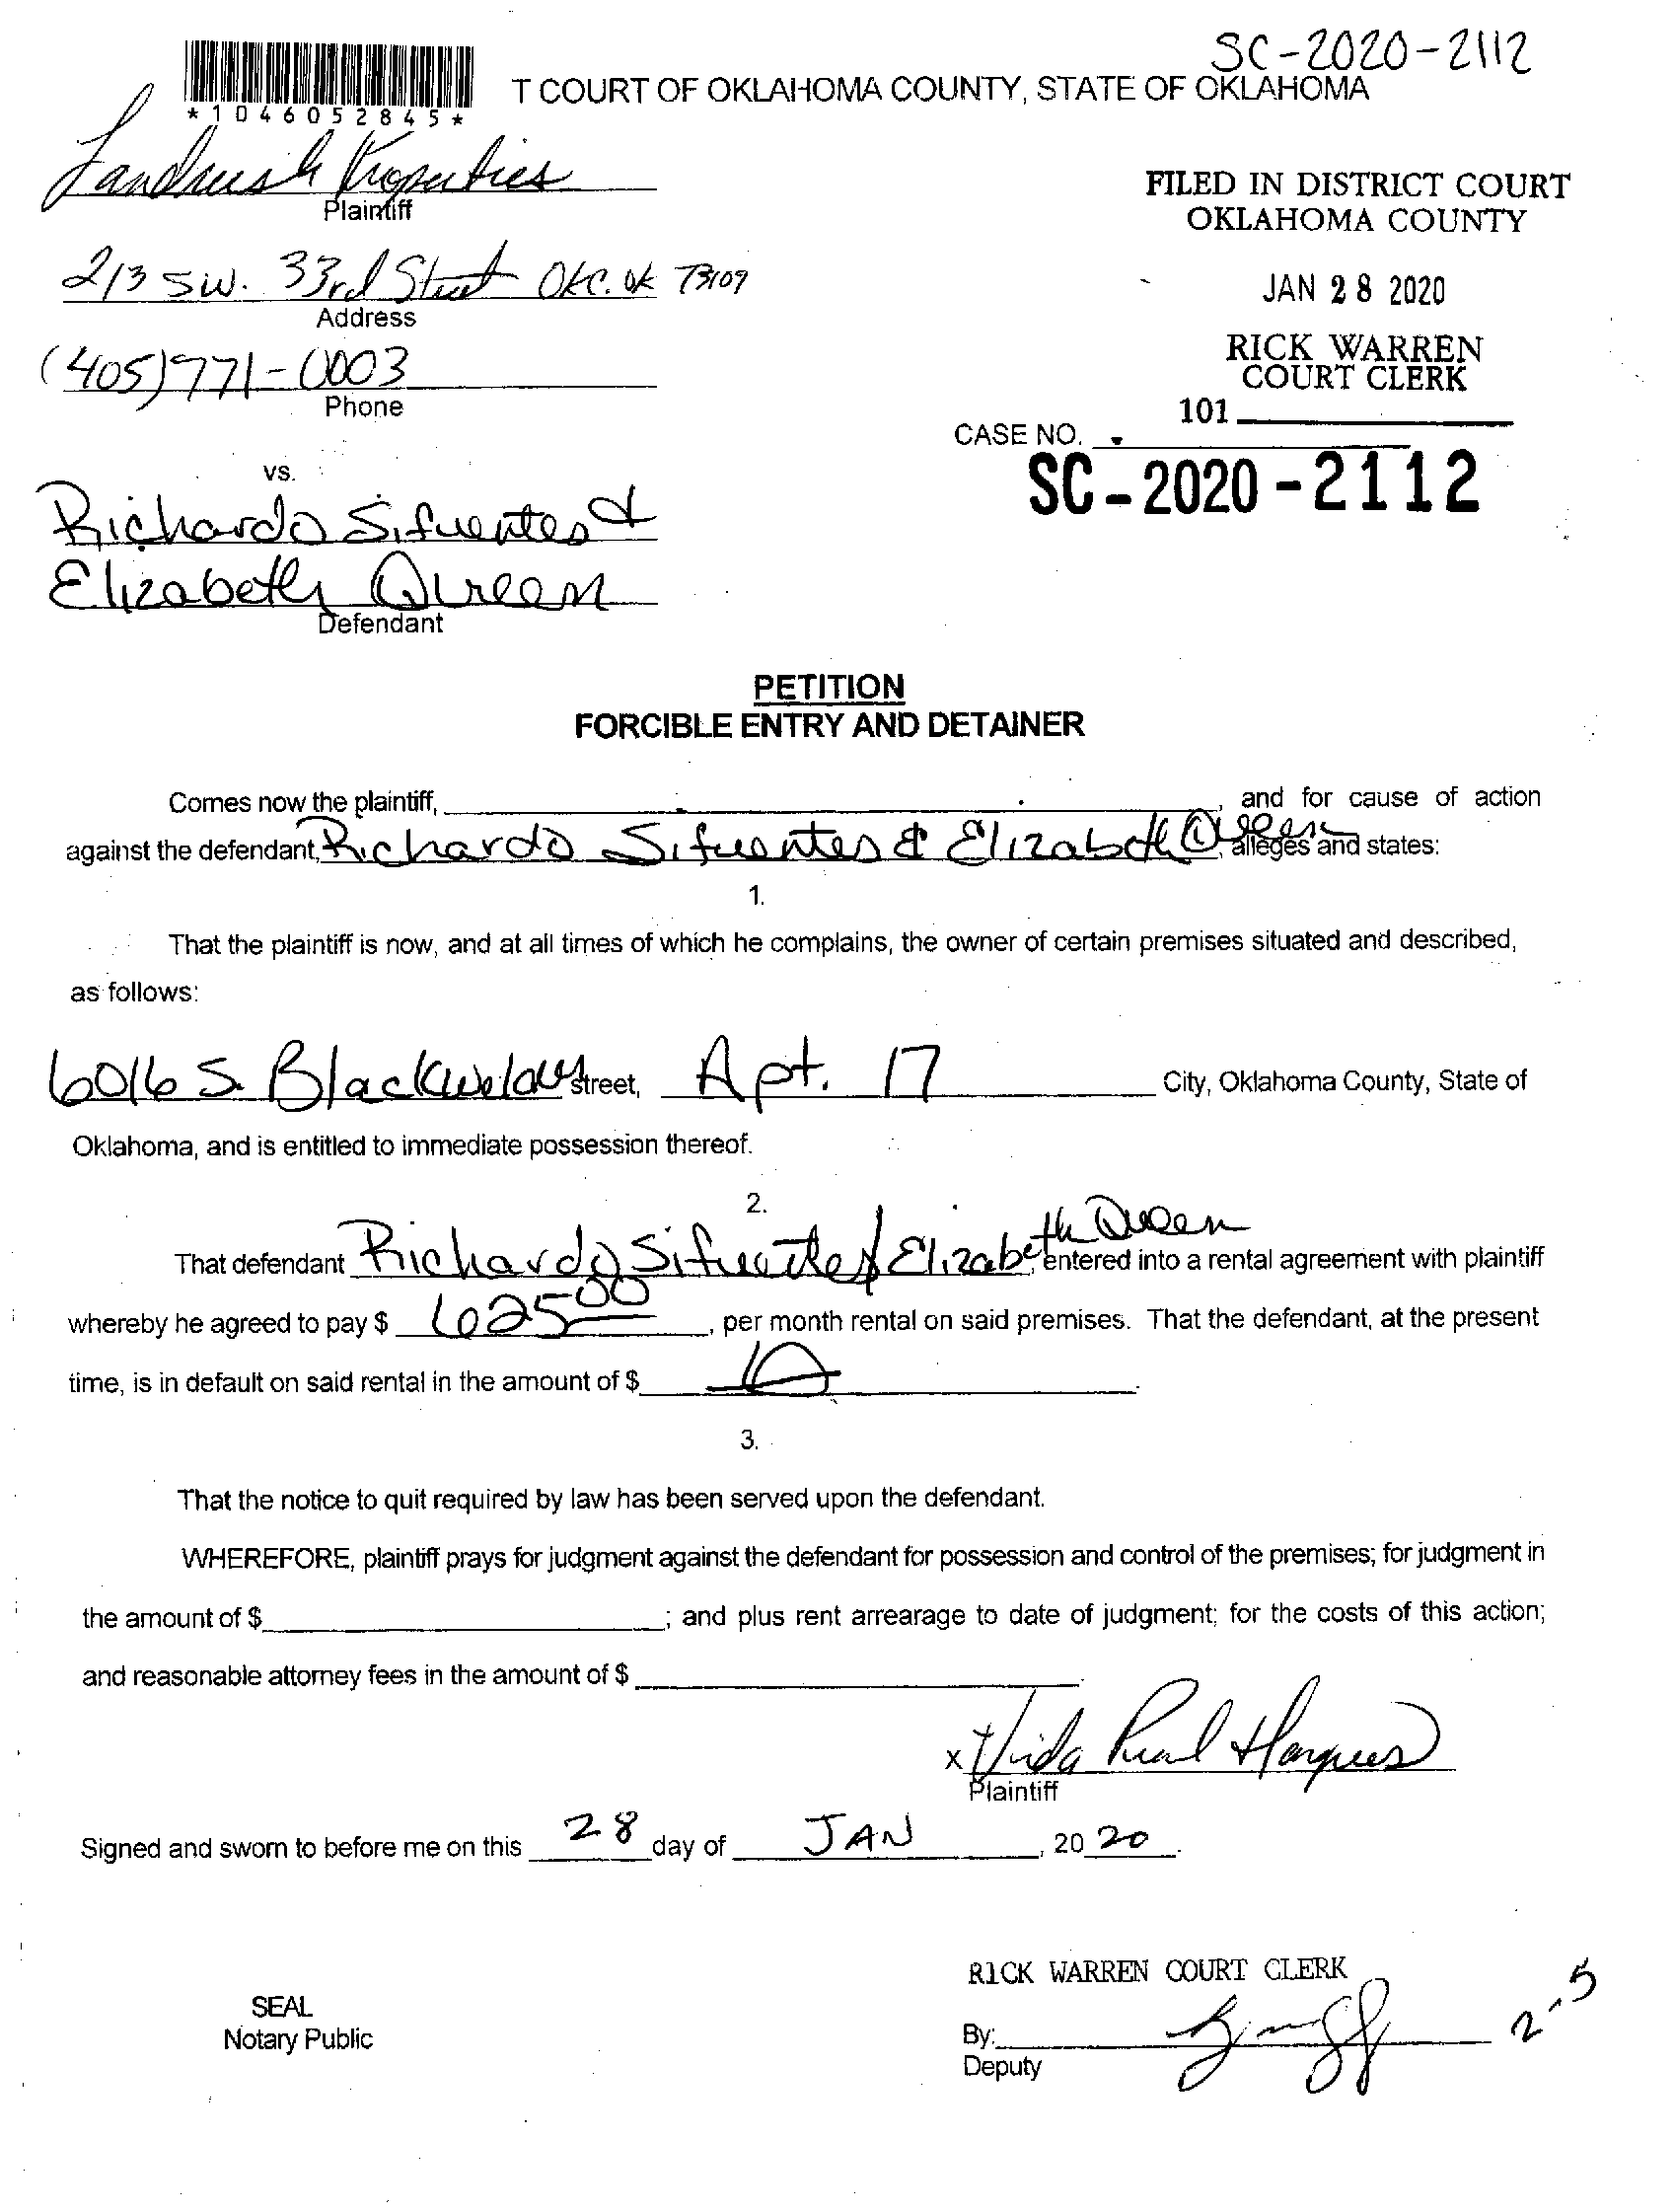 SC-2020-2112
T COURT OF OKLAHOMA COUNTY, STATE OF OKLAHOMA
*1046052845*
Landrush Properties
Plaintiff
FILED IN DISTRICT COURT
OKLAHOMA COUNTY
213 SW. 33rd Street OKC. OK 73109
Address
JAN 28 2020
(405)771-0003
Phone
RICK WARREN
COURT CLERK
101
CASE NO.
SC-2020-2112
vs.
Richardo Sifuentes &
Elizabeth Queen
Defendant
PETITION
FORCIBLE ENTRY AND DETAINER
Comes now the plaintiff, , and for cause of action
against the defendant, Richardo Sifuentes & Elizabeth Queen, alleges and states:
1.
That the plaintiff is now, and at all times of which he complains, the owner of certain premises situated and described,
as follows:
6016 S. Blackwelder street, Apt. 17 City, Oklahoma County, State of
Oklahoma, and is entitled to immediate possession thereof.
2.
That defendant Richardo Sifuentes / Elizabeth Queen entered into a rental agreement with plaintiff
whereby he agreed to pay $ 625 00, per month rental on said premises. That the defendant, at the present
time, is in default on said rental in the amount of $ .
3.
That the notice to quit required by law has been served upon the defendant.
WHEREFORE, plaintiff prays for judgment against the defendant for possession and control of the premises; for judgment in
the amount of $ ; and plus rent arrearage to date of judgment; for the costs of this action;
and reasonable attorney fees in the amount of $ .
x
Plaintiff
Signed and sworn to before me on this 28 day of JAN, 20 20.
RICK WARREN COURT CLERK
SEAL
Notary Public
By:
Deputy
2-5